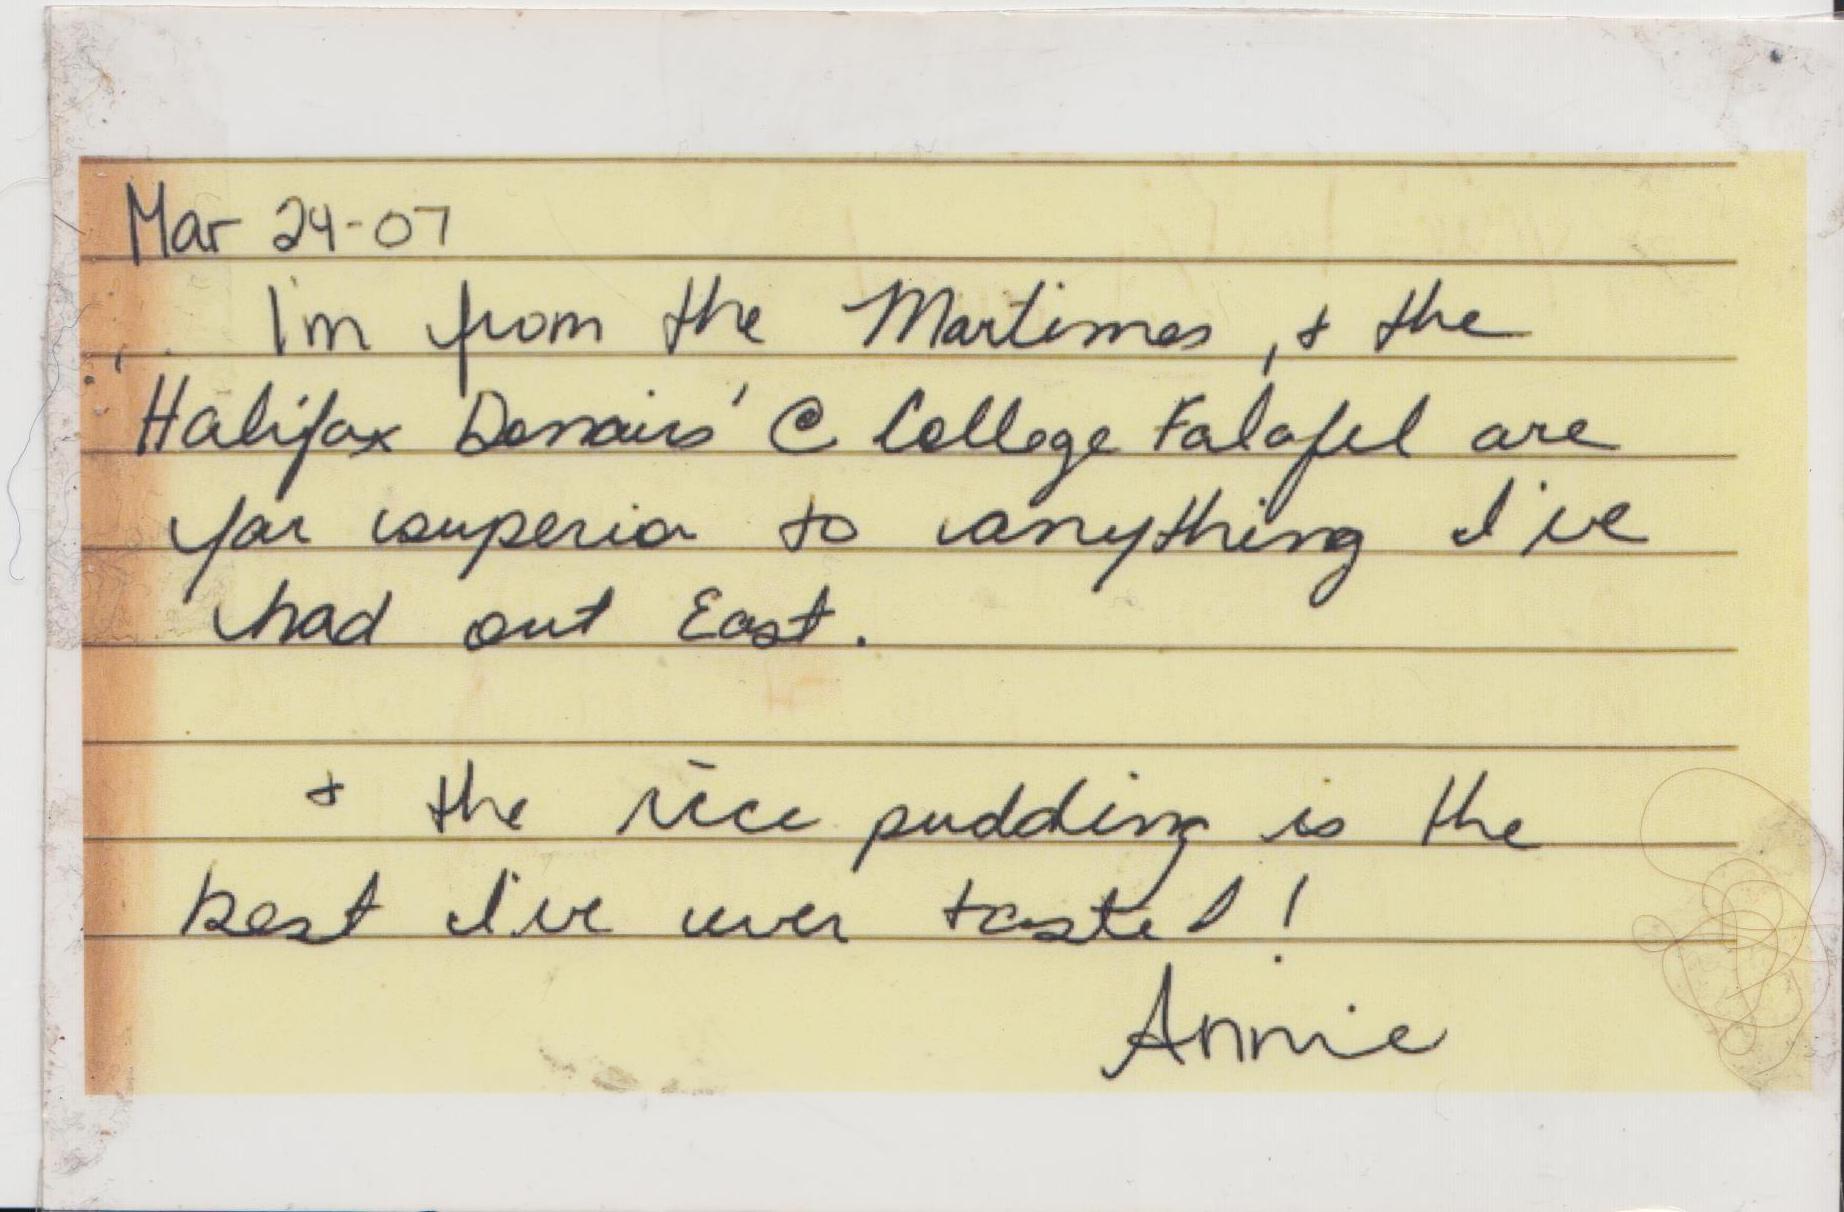 Mar 24-07
I'm from the Martimes, & the
Halifax Donairs' @ College Falafel are
far superior to anything I've
had out East.
& the rice pudding is the
best I've ever tasted!
Annie